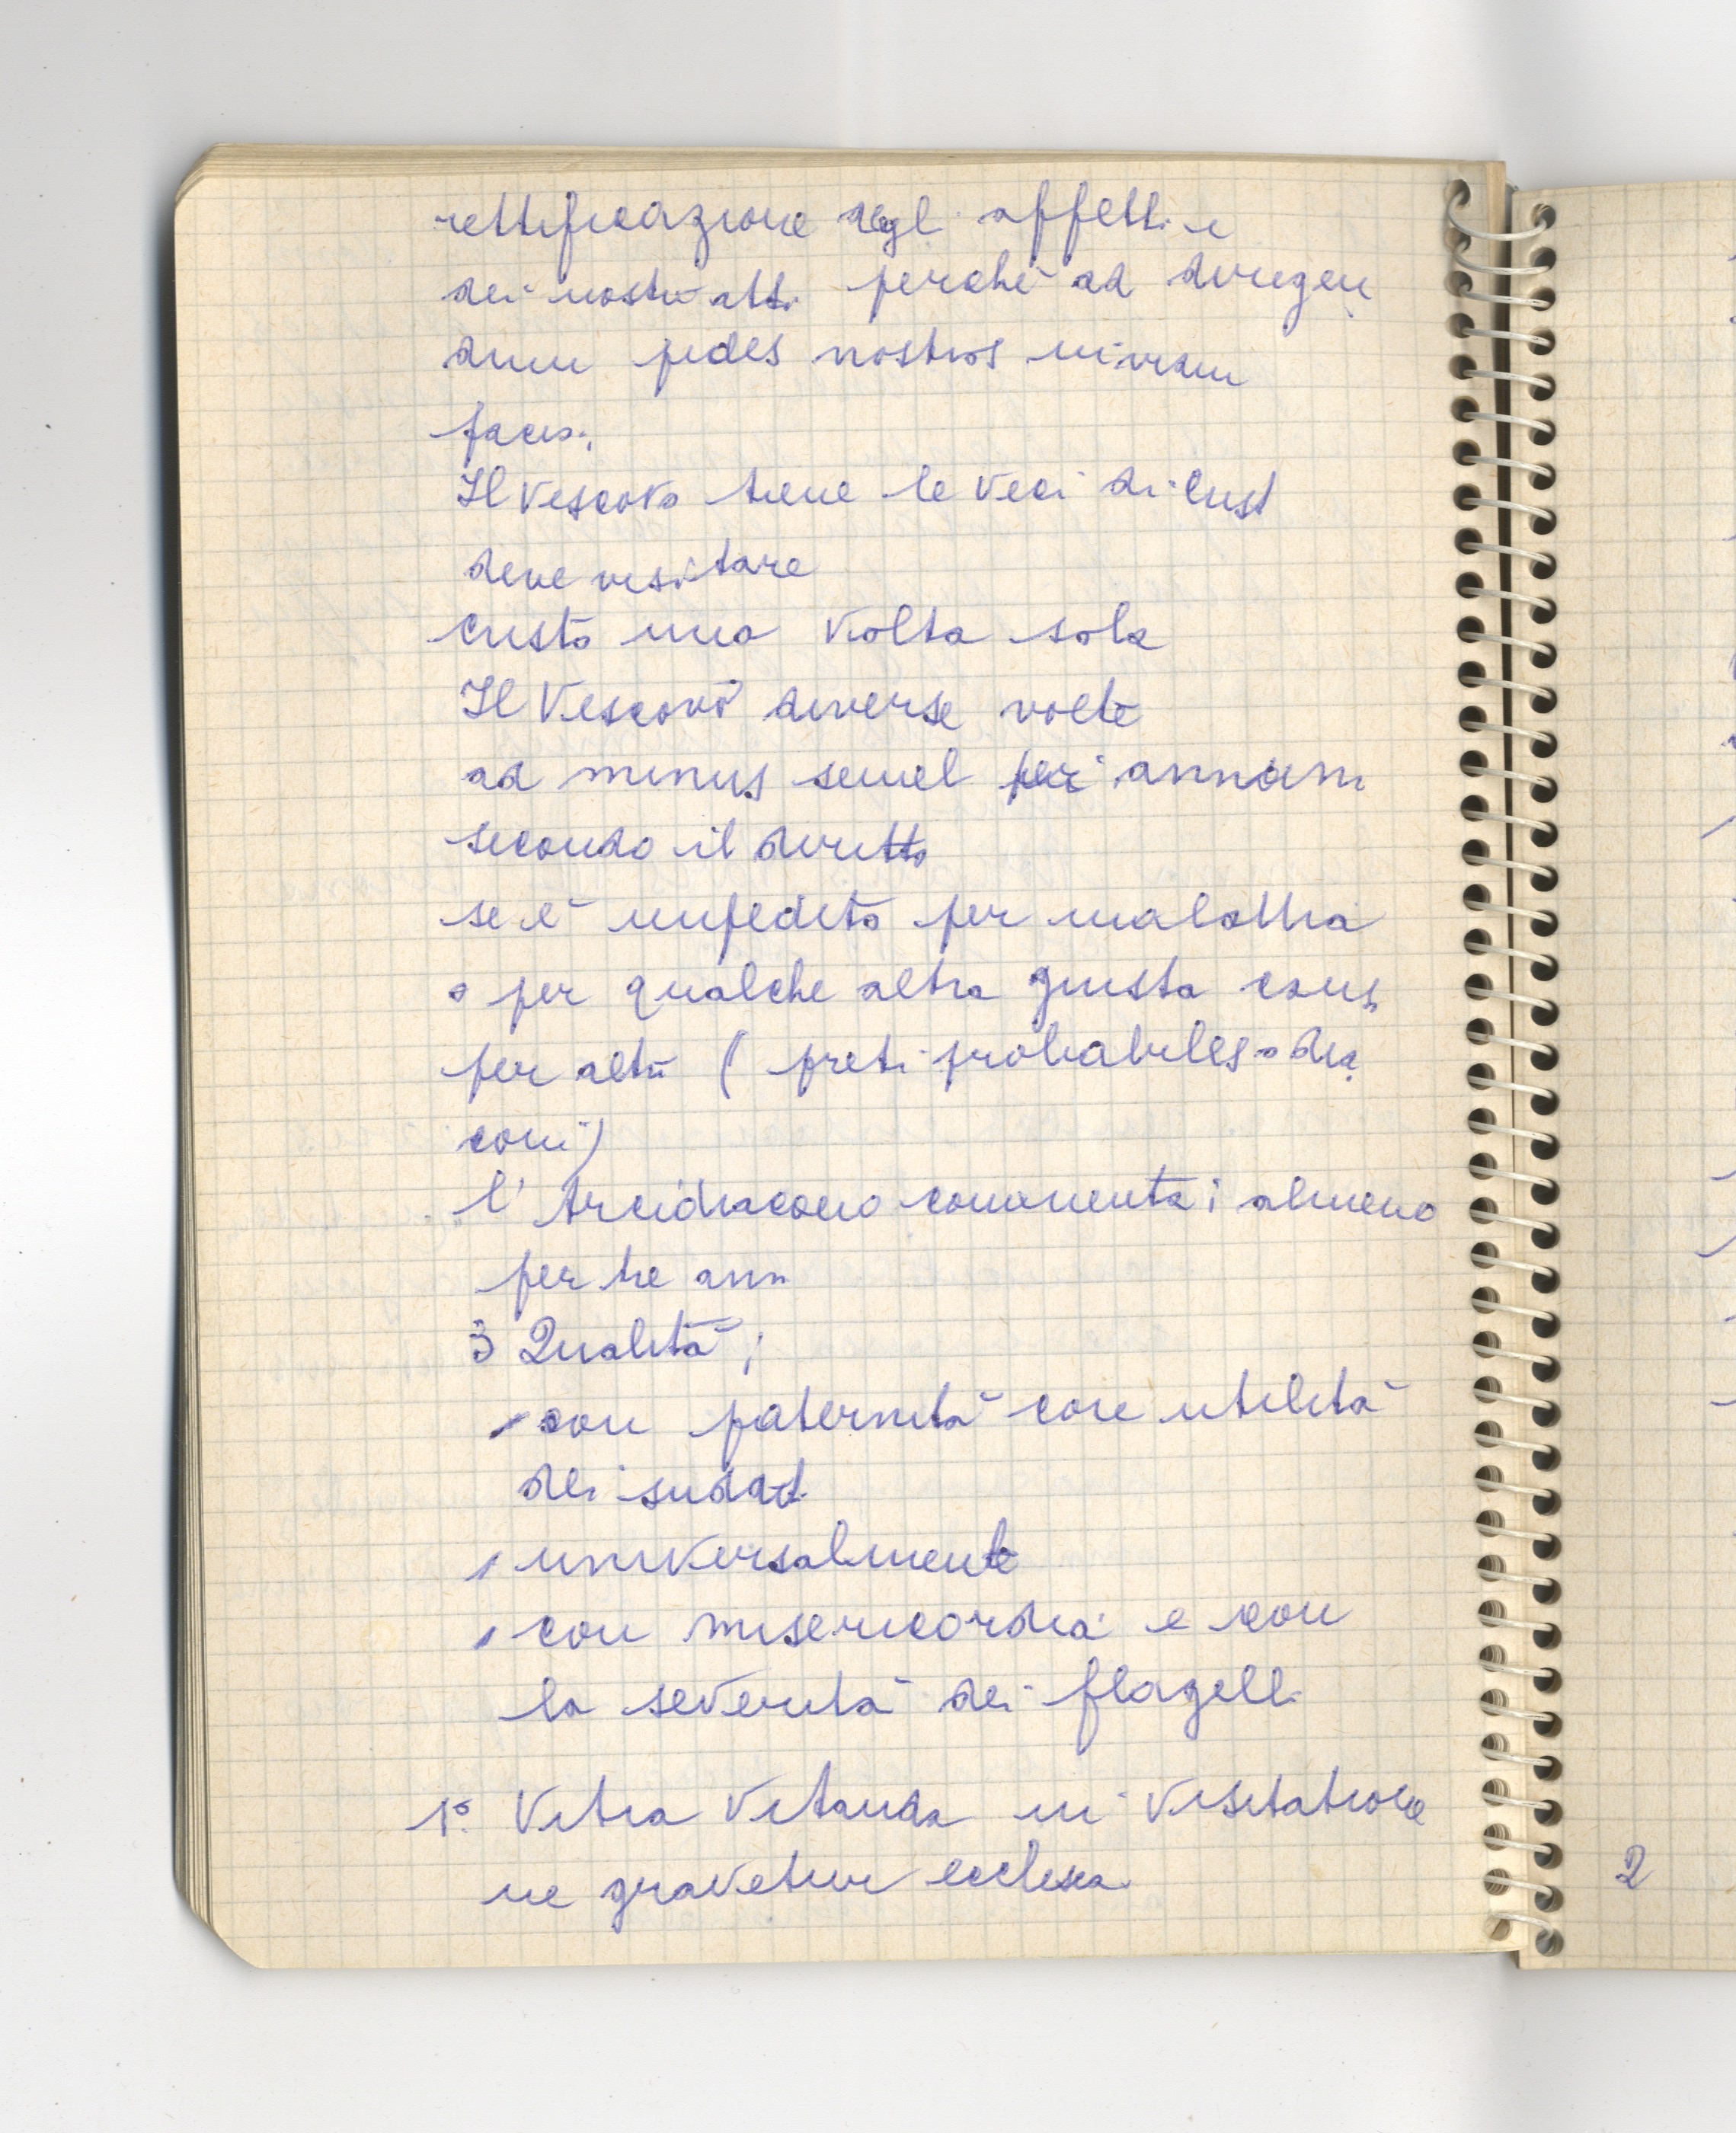 rettificazione degli affetti e
dei nostri atti perché ad dirigen
dum pedes nostros in viam
pacis.
Il Vescovo tiene le veci di Crist
deve visitare
Cristo una volta sola
Il Vescovo diverse volte
ad minus semel per annum
secondo il diritto
se è impedito per malattia
o per qualche altra giusta caus
per altri ( preti probabiles o dia
coni)
l' Arcidiacono commenta; almeno
per tre anni
3 Qualità;
con paternità con utilità
dei sudditi
universalmente
con misericordia e con
la severità dei flagelli
1° Vitia Vitanda in Visitatione
ne gravetur ecclesia
2